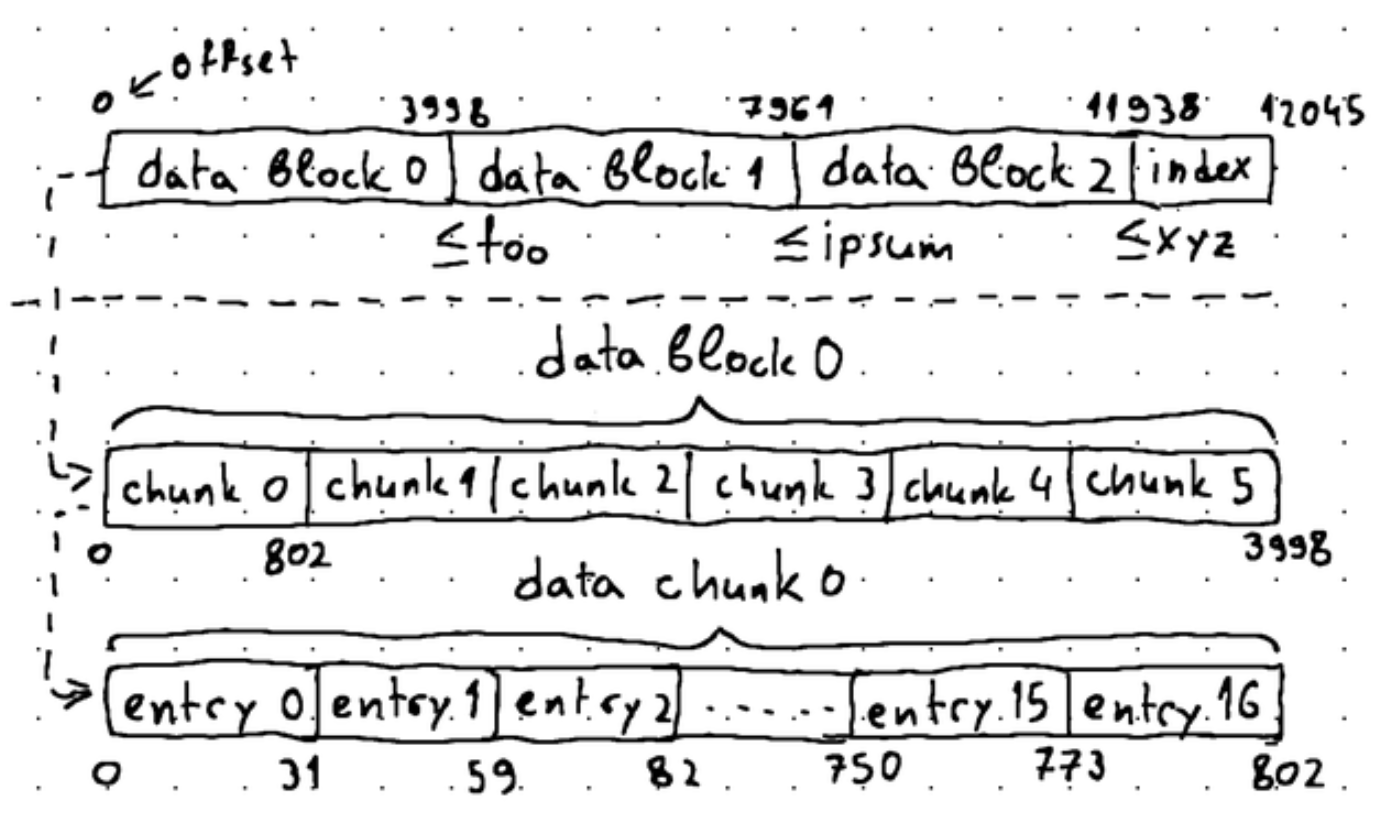 offset
0 3998 7961 11938 12045
data block 0 data block 1 data block 2 index
≤foo ≤ipsum ≤xyz
data block 0
chunk 0 chunk 1 chunk 2 chunk 3 chunk 4 chunk 5
0 802 3998
data chunk 0
entry 0 entry 1 entry 2 ...... entry 15 entry 16
0 31 59 82 750 773 802